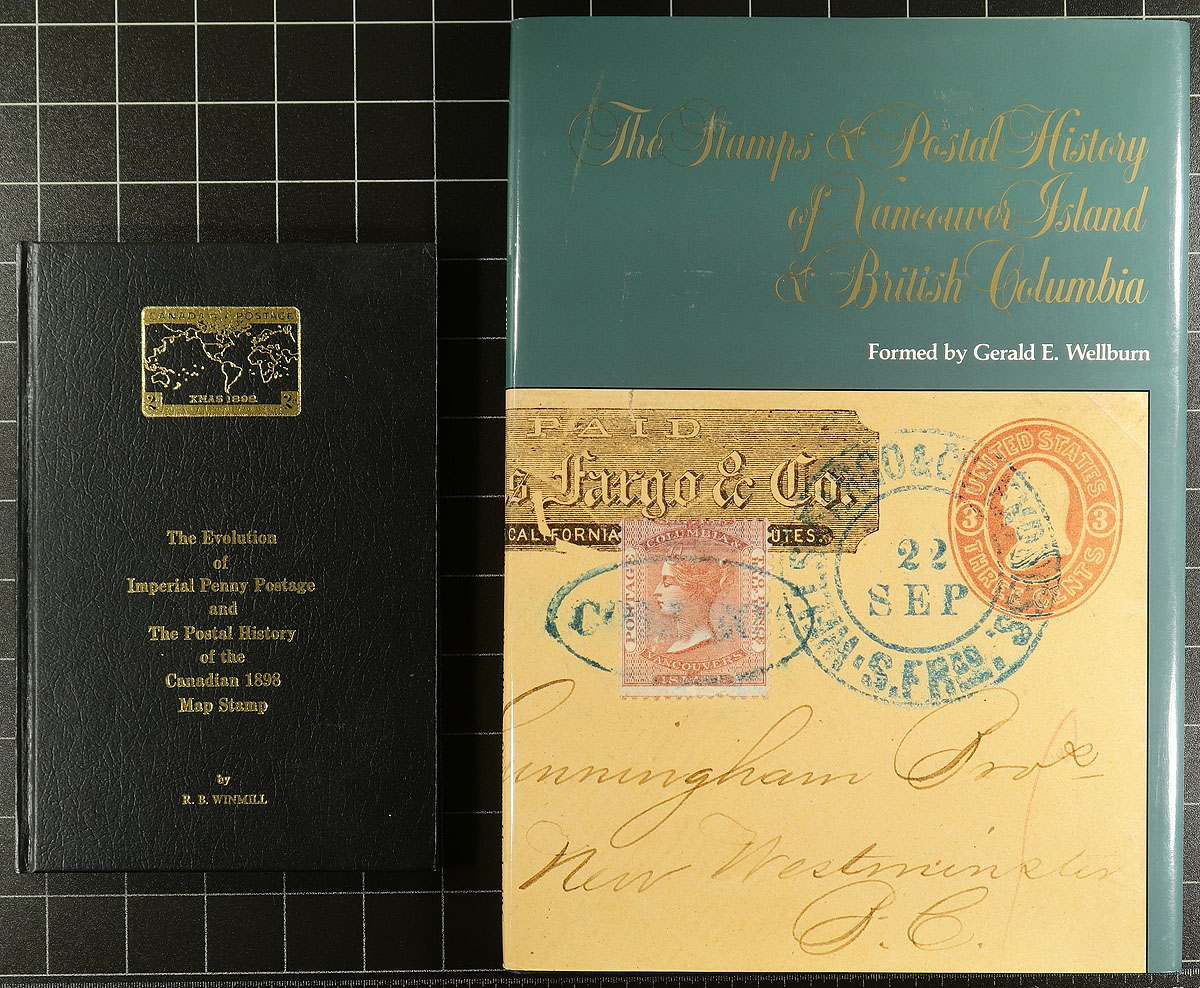 CANADA POSTAGE
XMAS 1898
2 2
The Evolution
of
Imperial Penny Postage
and
The Postal History
of the
Canadian 1898
Map Stamp
by
R. B. WINMILL
The Stamps & Postal History
of Vancouver Island
& British Columbia
Formed by Gerald E. Wellburn
PAID
s Fargo & Co.
CALIFORNIA
UTES.
UNITED STATES
3 3
THREE CENTS
22
SEP
COLUMBIA
POSTAGE
VANCOUVERS
unningham Bros
New Westminster
B.C.